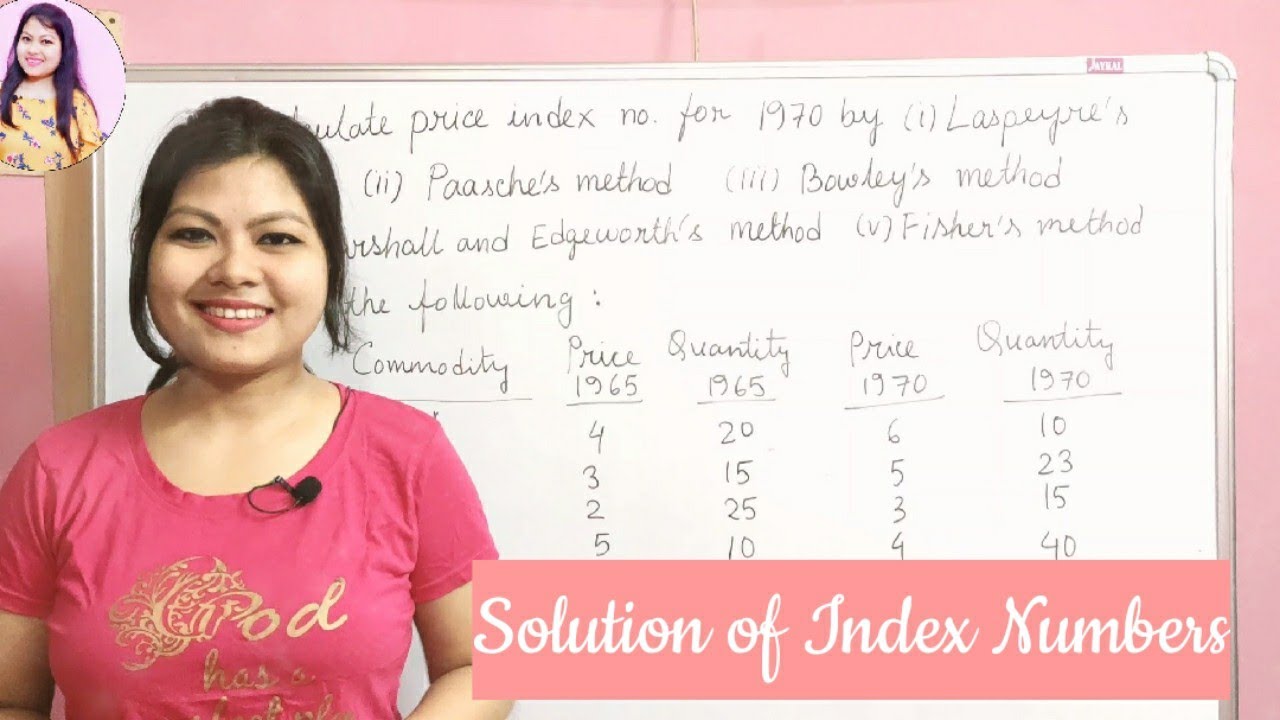 price index no. for 1970 by (i) Laspeyre's
(ii) Paasche's method (iii) Bowley's method
and Edgeworth's method (v) Fisher's method
the following :
Commodity Price 1965 Quantity 1965 Price 1970 Quantity 1970
4 20 6 10
3 15 5 23
2 25 3 15
5 10 4 40
God
has a
Solution of Index Numbers